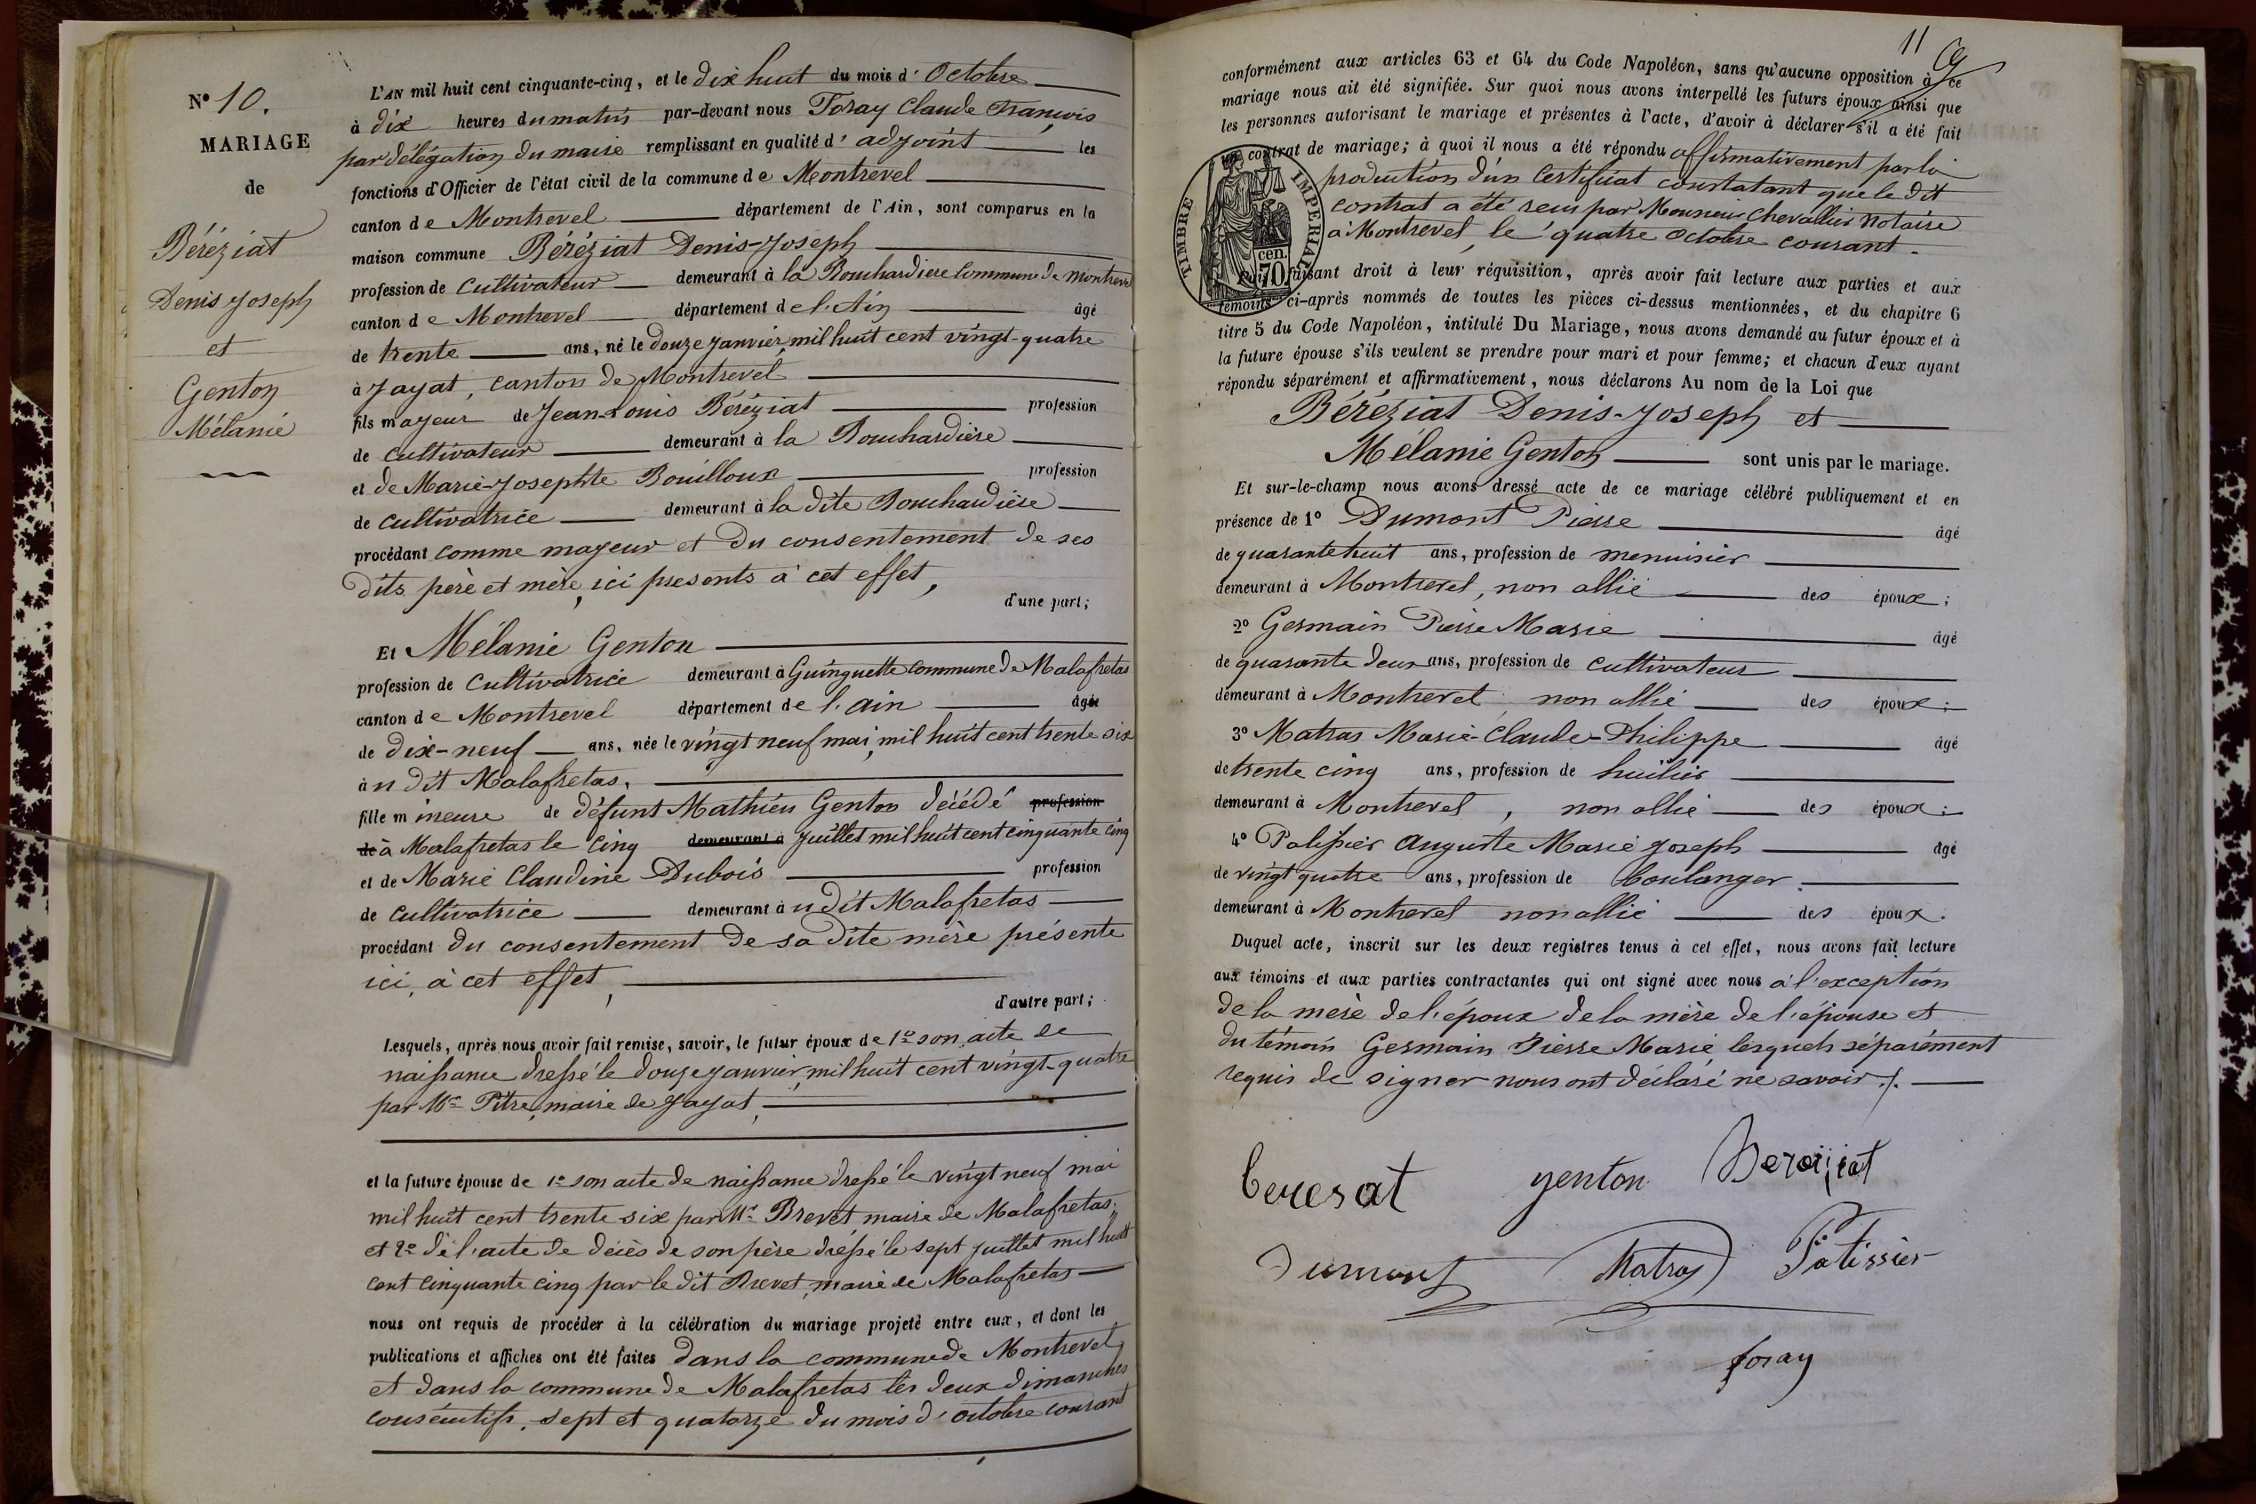 N° 10.
MARIAGE
de
Béréziat
Denis Joseph
et
Genton
Mélanie
L'AN mil huit cent cinquante-cinq, et le dix huit du mois d'Octobre
à dix heures du matin par-devant nous Foray Claude François
par délégation du maire remplissant en qualité d'adjoint les
fonctions d'Officier de l'état civil de la commune de Montrevel
canton de Montrevel département de l'Ain, sont comparus en la
maison commune Béréziat Denis-Joseph
profession de cultivateur demeurant à la Bouchardiere commune de Montrevel
canton de Montrevel département de l'Ain âgé
de trente ans, né le douze janvier, mil huit cent vingt-quatre
à Jayat, canton de Montrevel
fils mayeur de Jean-Louis Béréziat profession
de cultivateur demeurant à la Bouchardière
et de Marie-Josephte Bouilloux profession
de cultivatrice demeurant à la dite Bouchardière
procédant comme mayeur et du consentement de ses
dits père et mère, ici presents à cet effet,
d'une part;
Et Mélanie Genton
profession de cultivatrice demeurant à Guinguette commune de Malafretas
canton de Montrevel département de l'ain âgée
de dix-neuf ans, née le vingt neuf mai, mil huit cent trente six
à u dit Malafretas,
fille mineure de défunt Mathieu Genton décédé profession
de à Malafretas le cinq demeurant à juillet mil huit cent cinquante cinq
et de Marie Claudine Dubois profession
de cultivatrice demeurant à u dit Malafretas
procédant du consentement de sa dite mère présente
ici, à cet effet,
d'autre part;
Lesquels, après nous avoir fait remise, savoir, le futur époux de 1° son acte de
naissance dressé le douze janvier, mil huit cent vingt-quatre
par Mr Pitre, maire de Jayat,
et la future épouse de 1° son acte de naissance dressé le vingt neuf mai
mil huit cent trente six par Mr Brevet maire de Malafretas,
et 2° de l'acte de décès de son père dressé le sept juillet mil huit
cent cinquante cinq par le dit Brevet, maire de Malafretas
nous ont requis de procéder à la célébration du mariage projeté entre eux, et dont les
publications et affiches ont été faites dans la commune de Montrevel
et dans la commune de Malafretas les deux dimanches
consécutifs, sept et quatorze du mois d'octobre courant
11
conformément aux articles 63 et 64 du Code Napoléon, sans qu'aucune opposition à ce
mariage nous ait été signifiée. Sur quoi nous avons interpellé les futurs époux ainsi que
les personnes autorisant le mariage et présentes à l'acte, d'avoir à déclarer s'il a été fait
un contrat de mariage; à quoi il nous a été répondu affirmativement par la
production d'un certificat constatant que le dit
contrat a été reçu par Monsieur Chevallier Notaire
à Montrevel, le quatre octobre courant.
TIMBRE IMPERIAL
70 cen.
faisant droit à leur réquisition, après avoir fait lecture aux parties et aux
témoins ci-après nommés de toutes les pièces ci-dessus mentionnées, et du chapitre 6
titre 5 du Code Napoléon, intitulé Du Mariage, nous avons demandé au futur époux et à
la future épouse s'ils veulent se prendre pour mari et pour femme; et chacun d'eux ayant
répondu séparément et affirmativement, nous déclarons Au nom de la Loi que
Béréziat Denis-Joseph et
Mélanie Genton sont unis par le mariage.
Et sur-le-champ nous avons dressé acte de ce mariage célébré publiquement et en
présence de 1° Dumont Pierre âgé
de quarante huit ans, profession de menuisier
demeurant à Montrevel, non allié des époux;
2° Germain Pierre Marie âgé
de quarante deux ans, profession de cultivateur
demeurant à Montrevel non allié des époux;
3° Matras Marie-Claude-Philippe âgé
de trente cinq ans, profession de huilier
demeurant à Montrevel, non allié des époux;
4° Patissier Auguste Marie Joseph âgé
de vingt quatre ans, profession de boulanger
demeurant à Montrevel non allié des époux.
Duquel acte, inscrit sur les deux registres tenus à cet effet, nous avons fait lecture
aux témoins et aux parties contractantes qui ont signé avec nous à l'exception
de la mère de l'époux de la mère de l'épouse et
du témoin Germain Pierre Marie lesquels séparément
requis de signer nous ont déclaré ne savoir.
beresat genton Bereziat
Dumont Matras Patissier
foray